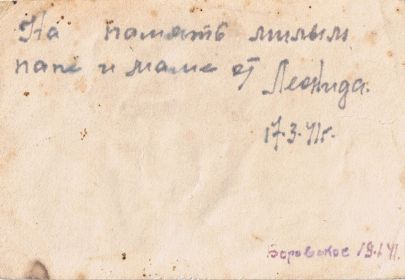 На память милым
папе и маме от
Леонида.
17.3.41г.
Боровское 19.1.41.